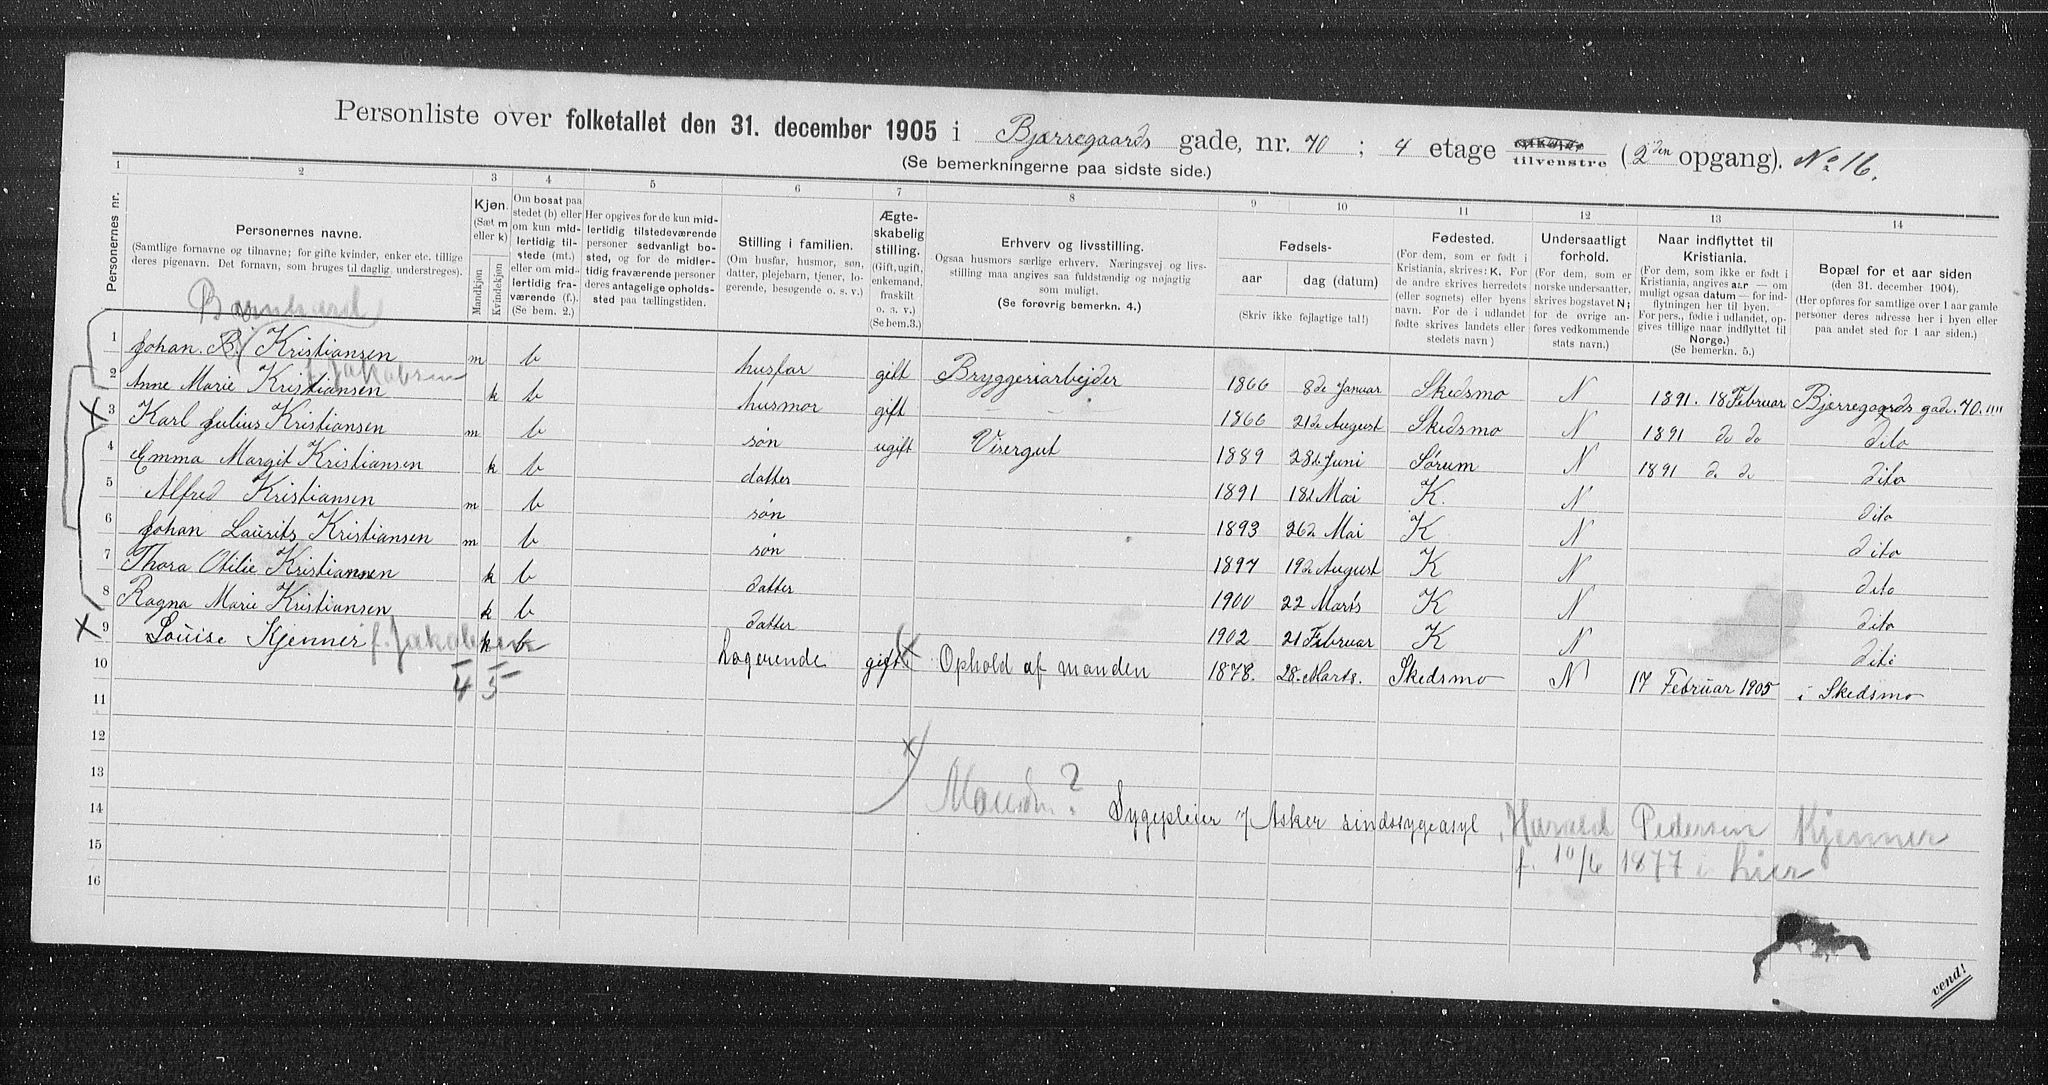 Personliste over folketallet den 31. december 1905 i Bjerregaards gade, nr. 70 ; 4 etage tilvenstre (2den opgang). No 16.
(Se bemerkningerne paa sidste side.)
1 2 3 4 5 6 7 8 9 10 11 12 13 14
Personernes nr.
Personernes navne.
(Samtlige fornavne og tilnavne; for gifte kvinder, enker etc. tillige deres pigenavn. Det fornavn, som bruges til daglig, understreges).
Kjøn.
(Sæt m eller k)
Mandkjøn
Kvindekjøn
Om bosat paa stedet (b) eller om kun midlertidig tilstede (mt.) eller om midlertidig fraværende (f.). (Se bem. 2.)
Her opgives for de kun midlertidig tilstedeværende personer sedvanligt bosted, og for de midlertidig fraværende personer deres antagelige opholdssted paa tællingstiden.
Stilling i familien.
(Om husfar, husmor, søn, datter, plejebarn, tjener, logerende, besøgende o. s. v.)
Ægteskabelig stilling.
(Gift, ugift, enkemand, fraskilt o. s. v.)
(Se bem.3.)
Erhverv og livsstilling.
Ogsaa husmors særlige erhverv. Næringsvej og livsstilling maa angives saa fuldstændig og nøjagtig som muligt.
(Se forøvrig bemerkn. 4.)
Fødsels-
aar
dag (datum)
(Skriv ikke fejlagtige tal!)
Fødested.
(For dem, som er født i Kristiania, skrives: K. For de andre skrives herredets (eller sognets) eller byens navn. For de i udlandet fødte skrives landets eller stedets navn)
Undersaatligt forhold.
(For dem, som er norske undersaatter, skrives bogstavet N; for de øvrige anføres vedkommende stats navn.)
Naar indflyttet til Kristiania.
(For dem, som ikke er født i Kristiania, angives aar — om muligt ogsaa datum — for indflytningen her til byen. For pers., fødte i udlandet, opgives tillige naar indflyttet til Norge.)
(Se bemerkn. 5.)
Bopæl for et aar siden
(den 31. december 1904).
(Her opføres for samtlige over 1 aar gamle personer deres adresse her i byen eller paa andet sted for 1 aar siden.)
Bernhard
1 Johan. B. Kristiansen m b husfar gift Bryggeriarbejder 1866 8de Januar Skedsmo N 1891. 18 Februar Bjerregaards gade. 70. """
f. Jakobsen
2 Anne Marie Kristiansen k b husmor gift — — — 1866 21de August Skedsmo N 1891 do do dito
3 Karl Julius Kristiansen m b søn ugift Visergut 1889 28de Juni Sørum N 1891 do do dito
4 Emma Margit Kristiansen k b datter 1891 18de Mai K. N dito
5 Alfred Kristiansen m b søn 1893 26de Mai K N dito
6 Johan Laurits Kristiansen m b søn 1897 19de August K N dito
7 Thora Otilie Kristiansen k b datter 1900 22 Marts K N dito
8 Ragna Marie Kristiansen k b datter 1902 21 Februar K N dito
9 Louise Kjenner f. Jakobsen k b logerende gift Ophold af manden 1878. 28. Marts. Skedsmo N 17 Februar 1905 i Skedsmo
10
4 5
11
12
13
Manden?
14 Sygepleier v/ Asker sindssygeasyl, Harald Pedersen Kjenner
15 f. 10/6 1877 i Lier
16
vend!